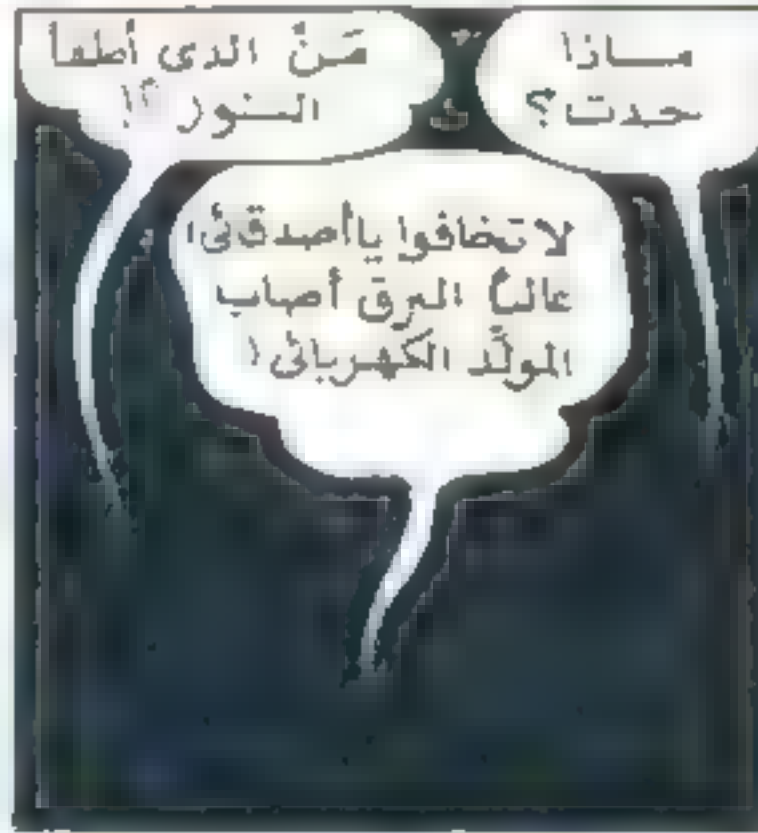 ماذا
حدث؟
مَنْ الذى أطفأ
النور؟!
لا تخافوا يا أصدقائى!
غالباً البرق أصاب
المولّد الكهربائى!